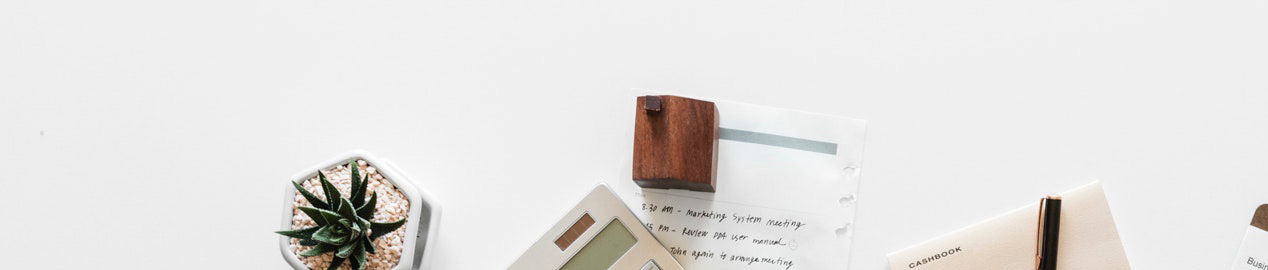 8.30 AM - Marketing System Meeting
15 PM - Review DPA user manual
John again to arrange meeting
CASHBOOK